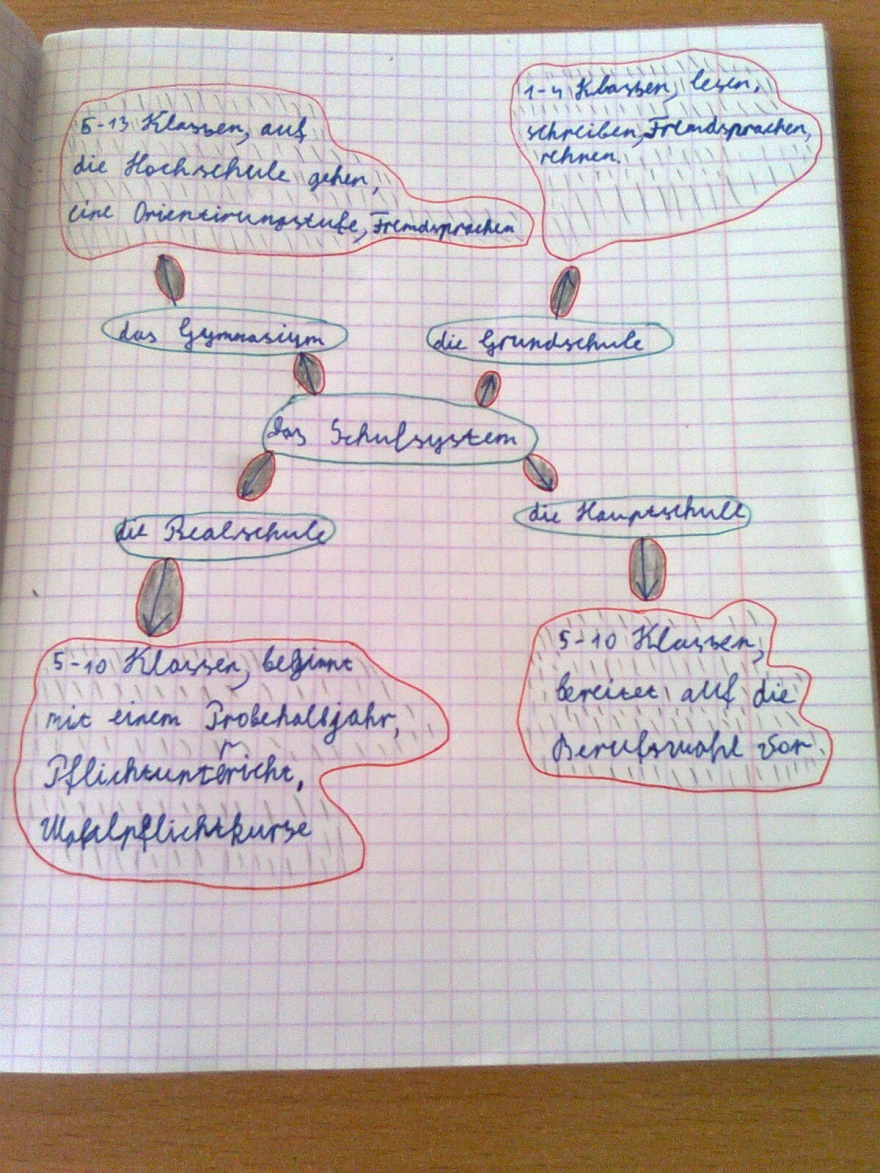 5-13 Klassen, auf
die Hochschule gehen,
eine Orientirungstufe, Fremdsprachen
1-4 Klassen, lesen,
schreiben, Fremdsprachen,
rehnen.
das Gymnasium
die Grundschule
das Schulsystem
die Realschule
die Hauptschule
5-10 Klassen, beginnt
mit einem Probehalbjahr,
Pflichtunterricht,
Wahlpflichtkurse
5-10 Klassen,
bereitet auf die
Berufswahl vor